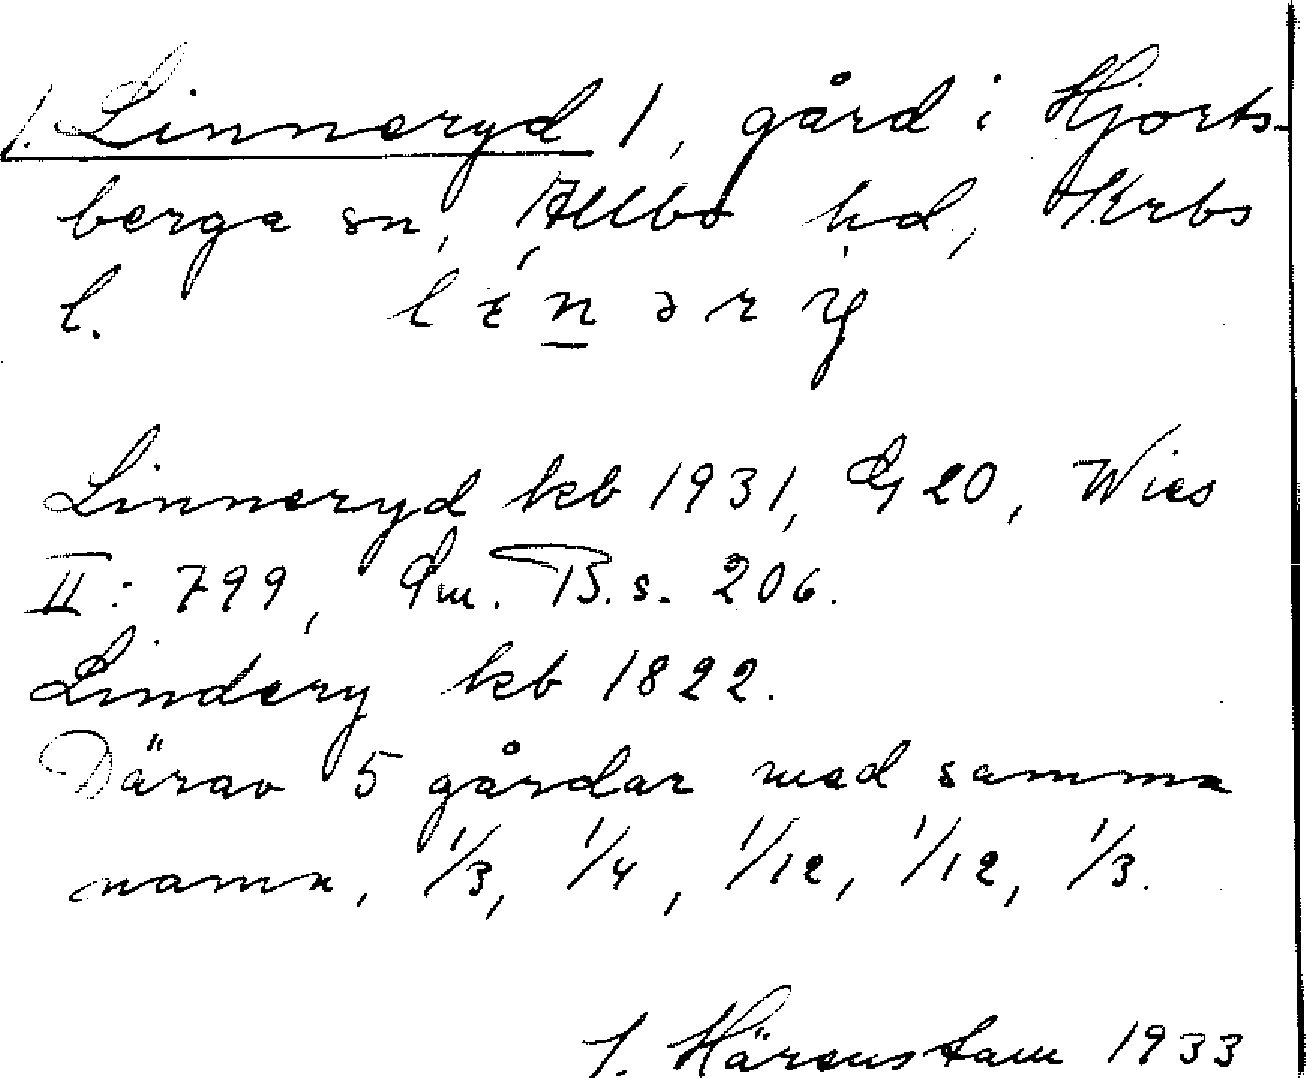 1. Linneryd 1, gård i Hjorts-
berga sn, Allbo hd, Krbs
l. lɛ́nəry
Linneryd kb 1931, G 20, Wies
II: 799, Sm. B. s. 206.
Lindery kb 1822.
Därav 5 gårdar med samma
namn, 1/3, 1/4, 1/12, 1/12, 1/3.
Härenstam 1933